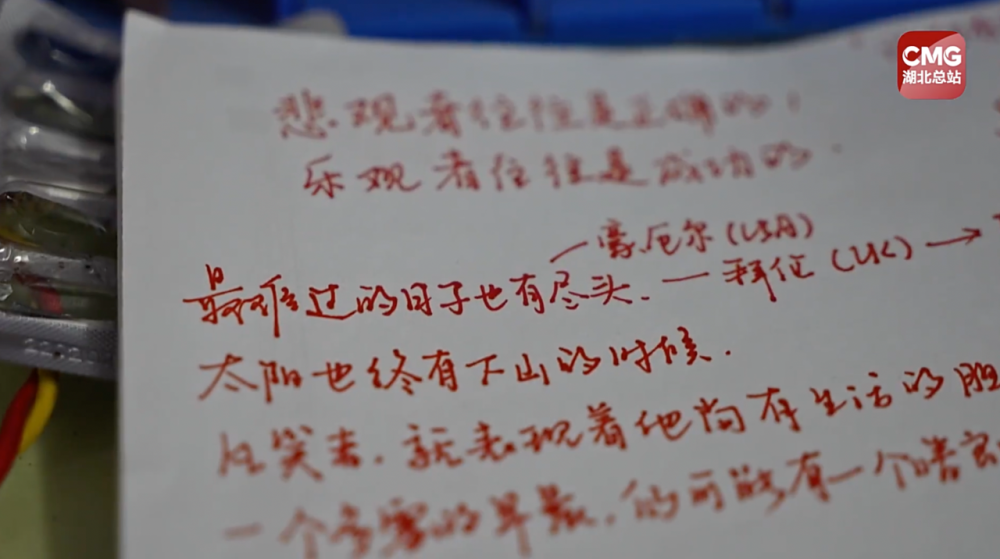 CMG
湖北总站
悲观者往往是正确的,
乐观者往往是成功的.
豪厄尔(USA)
最难过的日子也有尽头. — 拜伦 (UK) →
太阳也终有下山的时候.
笑着,就表现着他尚有生活的胆
一个多雾的早晨,仍可能有一个晴